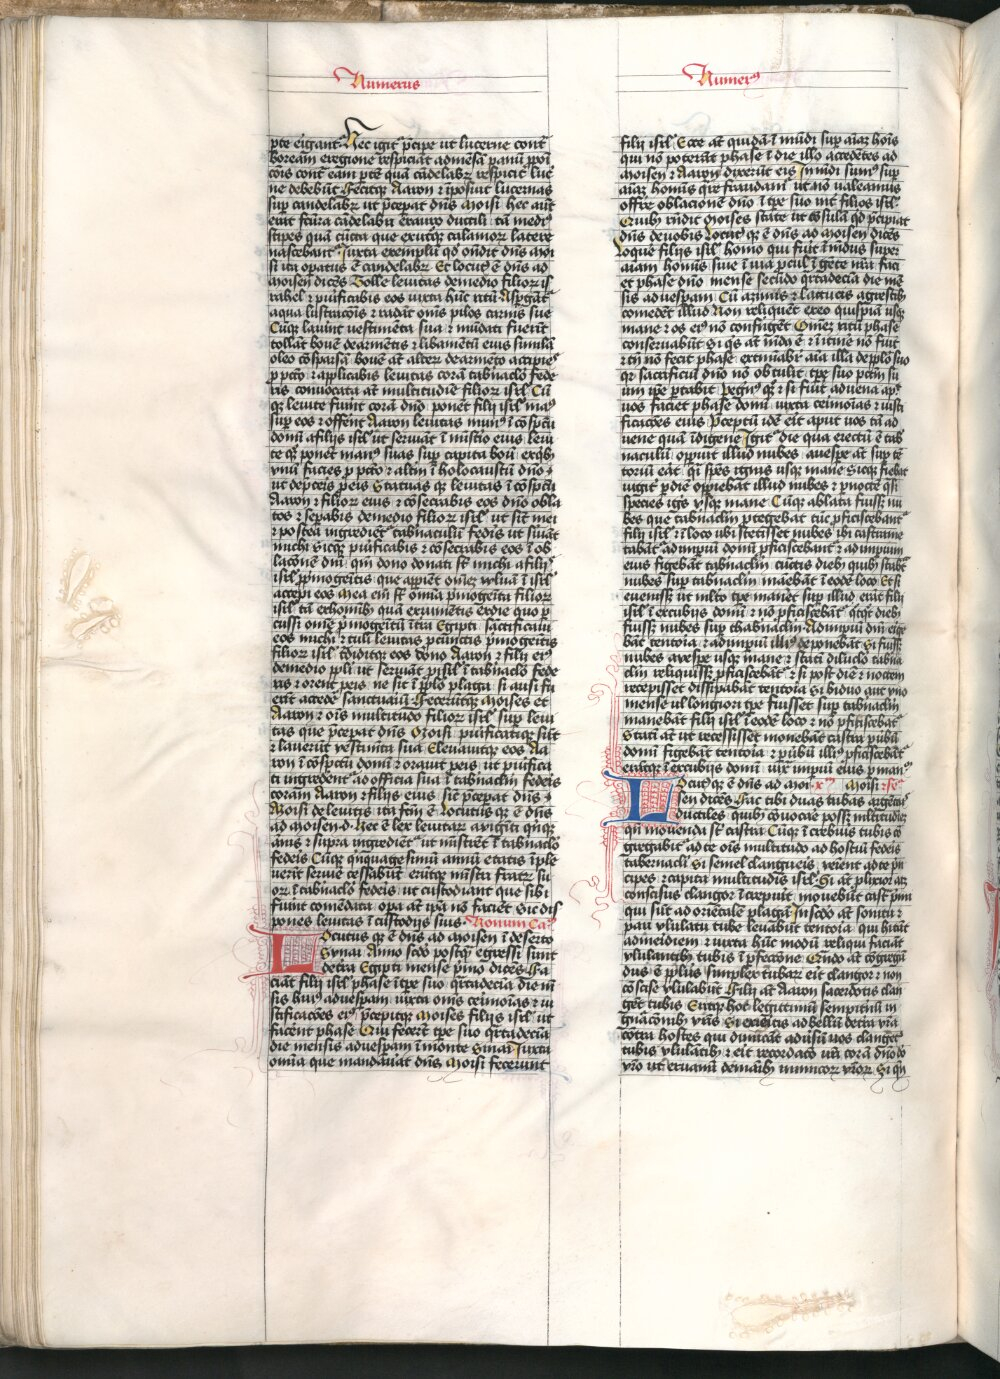 Numerus
pte eigant Hec igit p̄cipe ut lucerne cont̄
boream eregione respiciāt admēsā panū p̄poī
cōis cont̄ eam p̄tē quā cādelabꝝ respicit luc̄
ne debebūt fecitqꝫ Aaron ⁊ īposuit lucernas
sup candelabꝝ ut p̄cepat dn̄s moisi hec aūt
erāt fc̄ura cādelabri
stipes quā cūcta que exutqꝫ calamorꝫ latere
nascebant᷑ Juxta exemplū qd̄ ondit dn̄s moi
si ita opatus ē candelabꝝ Et locut᷒ ē dn̄s ad
moisen dicēs Tolle leuitas demedio filioꝝ is
rahel ⁊ puificabis eos iuxta hūc ritū Aspgāt᷑
aqua lustracōis ⁊ radāt om̄is pilos carnis sue
Cūqꝫ lauint vestimēta sua ⁊ mūdati fuerīt
tollāt bouē dearmētis ⁊ libamētū eius similā
oleo cōsparsā bouē āt alteꝝ dearmēto accipies
p pctō ⁊ applicabis leuitas corā tab̄naclō fede
ris conuocata āt multitudīe filioꝝ isrl̄ Cū
qꝫ leuite fuīnt corā dnō ponēt filij isrl̄ man᷒
sup eos ⁊ offēt Aaron leuitas mun᷒ ī cōspcū
domī afilijs isrl̄ ut seruiāt ī mīstīo eius leui
te qꝫ ponēt man᷒ suas sup capita boū exqbꝫ
vnū facies p pctō ⁊ altm̄ ī holocaustū dnō
ut depceris p̄eis Statuas qꝫ leuitas ī cōspcū
Aaron ⁊ filioꝝ eius ⁊ cōsecrabis eos dnō obla
tos ⁊ sepabis demedio filioꝝ isrl̄ ut sīt mei
⁊ postea ingrediēt᷑ tabnaculū federis ut suiāt
michi Sicqꝫ puificabis ⁊ cōsecrabis eos ī ob
lacōnē dnī qm̄ dono donati st̄ michi afilijs
isrl̄
accepi eos Mea em̄ st̄ om̄ia p̄mogeīta filioꝝ
isrl̄ tā exhomībꝫ quā exiumētis exdie quo p
cussi om̄e p̄mogeītū ītra Egipti sāctificaui
eos michi ⁊ tuli leuitas p cūnctis p̄mogeītis
filioꝝ isrl̄ t̄didiqꝫ eos dono Aaron ⁊ filijs ei᷒
demedio ppl̄i ut seruiāt p isrl̄ ī tab̄naclō fede
ris ⁊ orent p eis ne sit ī pp̄lo plaga si ausi fu
erīt accedē sanctuariū Feceruntqꝫ Moises et
Aaron ⁊ ois multitudo filioꝝ isrl̄ sup leui
tas que p̄cepat dn̄s Moisi puificatiqꝫ sūt
⁊ lauerūt vestimēta sua Eleuauitqꝫ eos Aa
ron ī cōspctū domī ⁊ orauit p eis ut puifica
ti ingredient᷑ ad officia sua ī tabnaclm̄ federis
coram Aaron ⁊ filijs eius sic̄ p̄cepat dn̄s
Moisi de leuitis ita fcm̄ ē Locutus qꝫ ē dn̄s
ad moisen d. Hec ē lex leuitaꝝ a viginti qnqꝫ
ānis ⁊ supra ingrediēt᷑ ut mīstrēt ī tabnaclō
federis Cūqꝫ qnquagesimū annū etatis īple
uerīt seruire cessabūt erūtqꝫ mīstri fratꝝ su
oꝝ ī tabnaclō federis ut custodiant que sibi
fuīnt comēdata opa āt ip̄a nō faciēt Sic dis
pones leuitas ī custodijs suis Nonum Ca
Locutus qꝫ ē dn̄s ad Moisen ī deserto
Synai Anno scdō postqꝫ egressi sunt
detra Egipti mense p̄mo dicēs Fa
ciāt filij isrl̄ phase ī tpe suo qrtadecia die mē
sis hui᷒ aduespam iuxta om̄is ceimoīas ⁊ iu
stificacōes ei᷒ p̄cepitqꝫ Moises filijs isrl̄ ut
facerēt phase Qui fecerūt tpe suo qrtadecia
die mensis aduespam ī monte Sinai Juxta
om̄ia que mandāuat dn̄s Moisi fecerunt
Numer᷒
filij isrl̄ Ecce āt quidā ī mūdi sup aīaꝫ hoīs
qui nō poterāt phase ī die illo accedētes ad
Moisen ⁊ Aaron dixerūt eis Jnmūdi sum᷒ sup
aīaꝫ homīs qre fraudam᷑ ut nō valeamus
offre oblacionē dnō ī tpe suo int̄ filios isrl̄
Quibꝫ rn̄dit Moises state ut cōsulā qd̄ p̄cipiat
dn̄s de uobis Locut᷒ qꝫ ē dn̄s ad Moisen dicēs
Loque filijs isrl̄ homo qui fuīt īmūdus super
aīam homīs siue ī uia p̄cul ī gēte nr̄a faci
et phase dnō mense secūdo qrtadecia die mē
sis aduespam Cū azimis ⁊ lactucis agrestibꝫ
comedēt illud Non relīquēt exeo quispiā usqꝫ
mane ⁊ os ei᷒ nō confrīgēt Om̄ēꝫ ritū phase
conseruabūt Si qs āt mūd᷒ ē ⁊ ī itīne nō fuit
⁊ tn̄ nō fecit phase extmīabit᷑ aīa illa de pplō suo
qꝫ sacrificiū dnō nō obtulit tpe suo pctm̄ su
um ip̄e portabit Pegn᷒ qꝫ ⁊ si fuīt aduena ap᷒
uos faciet phase domī iuxta ceimoīas ⁊ iusti
ficacōes eius P̄ceptū idē eīt aput uos tā ad
uene quā īdigene Jgit᷑ die qua erectū ē tab
naculū opuit illud nubes auespe āt sup tē
toriū eāt qsi spēs ignis usqꝫ mane Sicqꝫ fiebat
iugit p diē opiebat illud nubes ⁊ p noctē qsi
species igīs vsqꝫ mane Cūqꝫ ablata fuissꝫ nu
bes que tabnaclm̄ ptegebat tūc pficiscebant᷑
filij isrl̄ ⁊ ī loco ubi stetissꝫ nubes ibi castrame
tabāt᷑ ad impiū domī pficiscebant᷑ ⁊ ad impium
eius figebāt tabnaclm̄ cūctis diebꝫ quibꝫ stabat
nubes sup tabnaclm̄ māebāt ī eodē loco Et si
euenissꝫ ut mlto tpe manēt sup illud erāt filij
isrl̄ ī excubijs domī ⁊ nō pficiscebāt᷑ qtqt diebꝫ
fuissꝫ nubes sup thabnaclm̄ Ad impiū dnī eige
bāt tentoria ⁊ ad impiū illi᷒ deponebāt Si fuissꝫ
nubes auespe usqꝫ mane ⁊ statī diluclō tabna
clm̄ reliquissꝫ pficiscebāt᷑ ⁊ si post diē ⁊ noctem
recepisset dissipabāt tentoria Si biduo aut vno
mense ul longiori tpe fuisset sup tabnaclm̄
manebāt filij isrl̄ ī eodē loco ⁊ nō pficiscebāt᷑
Statī āt ut recessisset mouebāt castra p ūbū
domī figebāt tentoria ⁊ p ūbū illi᷒ pficiscebāt᷑
erātqꝫ ī excubijs domī iux̄ impiū eius p man᷒
Locut᷒ qꝫ ē dn̄s ad moi- xm Moisi
en dicēs Fac tibi duas tubas argētas
ductiles quibꝫ cōuocare possꝫ mltitudīeꝫ
qn̄ mouenda st̄ castra Cūqꝫ īcrebuis tubis cō
gregabit᷑ ad te oīs multitudo ad hostiū federis
tabernacli Si semel clangueis veient ad te prin
cipes ⁊ capita multitudīs isrl̄ Si āt plixior atqꝫ
conscisus clangor ī crepuit mouebūt cast̄ p̄mi
qui sūt ad oriētalē plagā Jn scdō āt sonitu ⁊
pari vlulatu tube leuabūt tentoria qui hītāt
ad meidiem ⁊ iuxta hūc modū reliqui faciāt
vlulantibꝫ tubis ī pfectōne Qn̄do āt cōgregā
dus ē ppl̄us simplex tubaꝝ eīt clangor ⁊ non
cōscise vlulabūt Filij āt Aaron sacerdotis clan
gēt tubis Eitqꝫ hoc legittimū sempitnū in
gn̄aconibꝫ vris Si exieritis ad bellū detra vrā
cōtra hostes qui dimicāt aduersū uos clangetis
tubis vlulātibꝫ ⁊ eīt recordatō vrī corā dnō do
vrō ut eruamī demanibꝫ inimicoꝝ vroꝝ Si qn̄